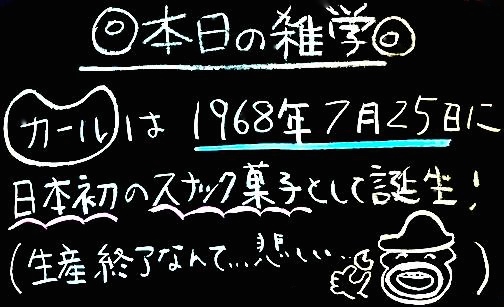 ◎本日の雑学◎
カールは1968年7月25日に
日本初のスナック菓子として誕生!
(生産終了なんて...悲しい...)